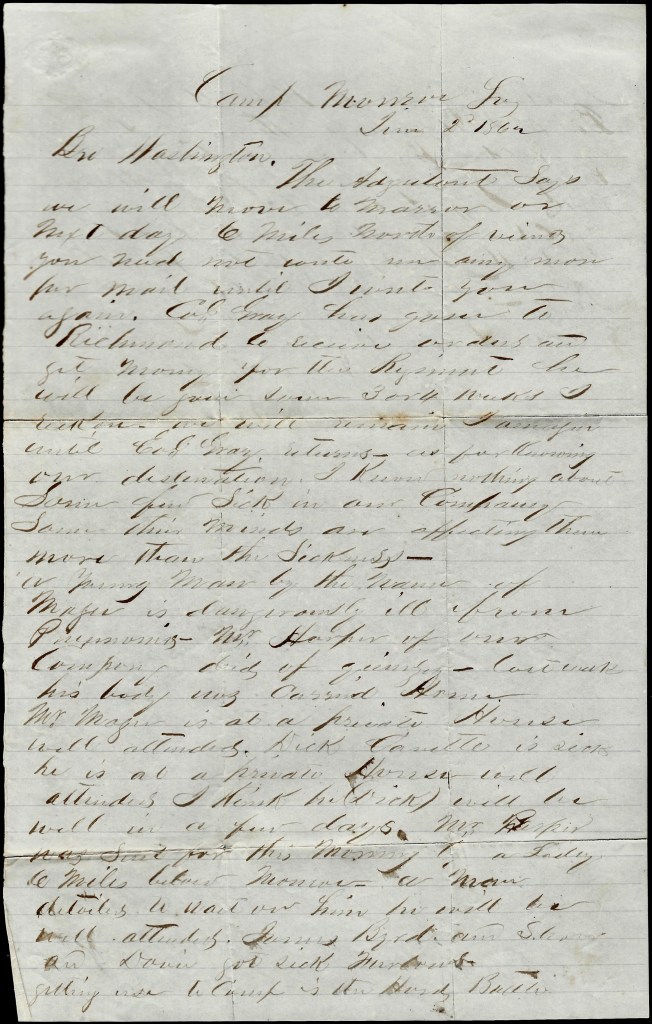 Camp Monroe La
June 2d 1862
Bro Washington.
The Adjutant Says
we will move to Morrow or
next day 6 Miles North of
you need not write me any more
per mail until I write you
again. Col Gray has gone to
Richmond to receive orders an
get Money for the Regiment he
will be gone some 3 or 4 weeks I
reckon we will remain
until Col Gray returns as for knowing
our destination I know nothing about
Some few Sick in our Company
Some their minds are affecting them
more than the Sickness —
a young Man by the name of
is dangerously ill from
Pneumonia Mr Harper of our
Company died of last week
his body was Carried Home
Mr is at a private House
well attended. Dick is sick
he is at a private House well
attended I think he (Dick) will be
well in a few days. Mr
was Sent for this Morning to a Lady
6 Miles below Monroe — a Man
detailed to wait on him he will be
well attended. James Byrd an
an got sick furlows
getting use to Camp is the Hard Battle